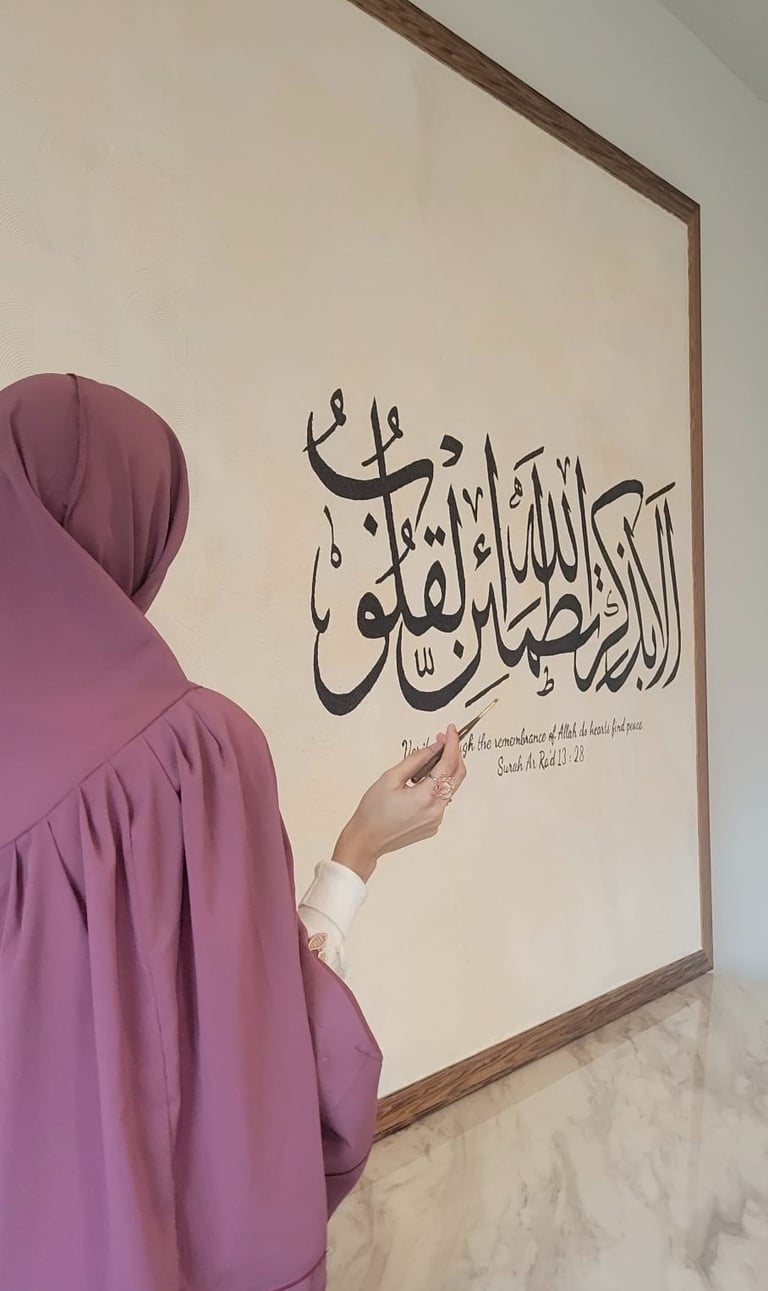 أَلَا بِذِكْرِ اللَّهِ تَطْمَئِنُّ الْقُلُوبُ
the remembrance of Allah do hearts find peace
Surah Ar Ra'd 13 : 28